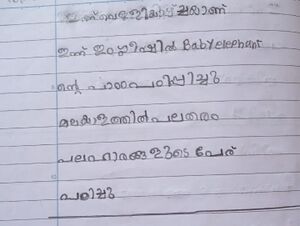 ഇന്ന് വെള്ളിയാഴ്ചയാണ്
ഇന്ന് ഇംഗ്ലീഷിൽ Baby elephant
ന്റെ പാഠം പഠിപ്പിച്ചു
മലയാളത്തിൽ പലതരം
പലഹാരങ്ങളുടെ പേര്
പഠിച്ചു